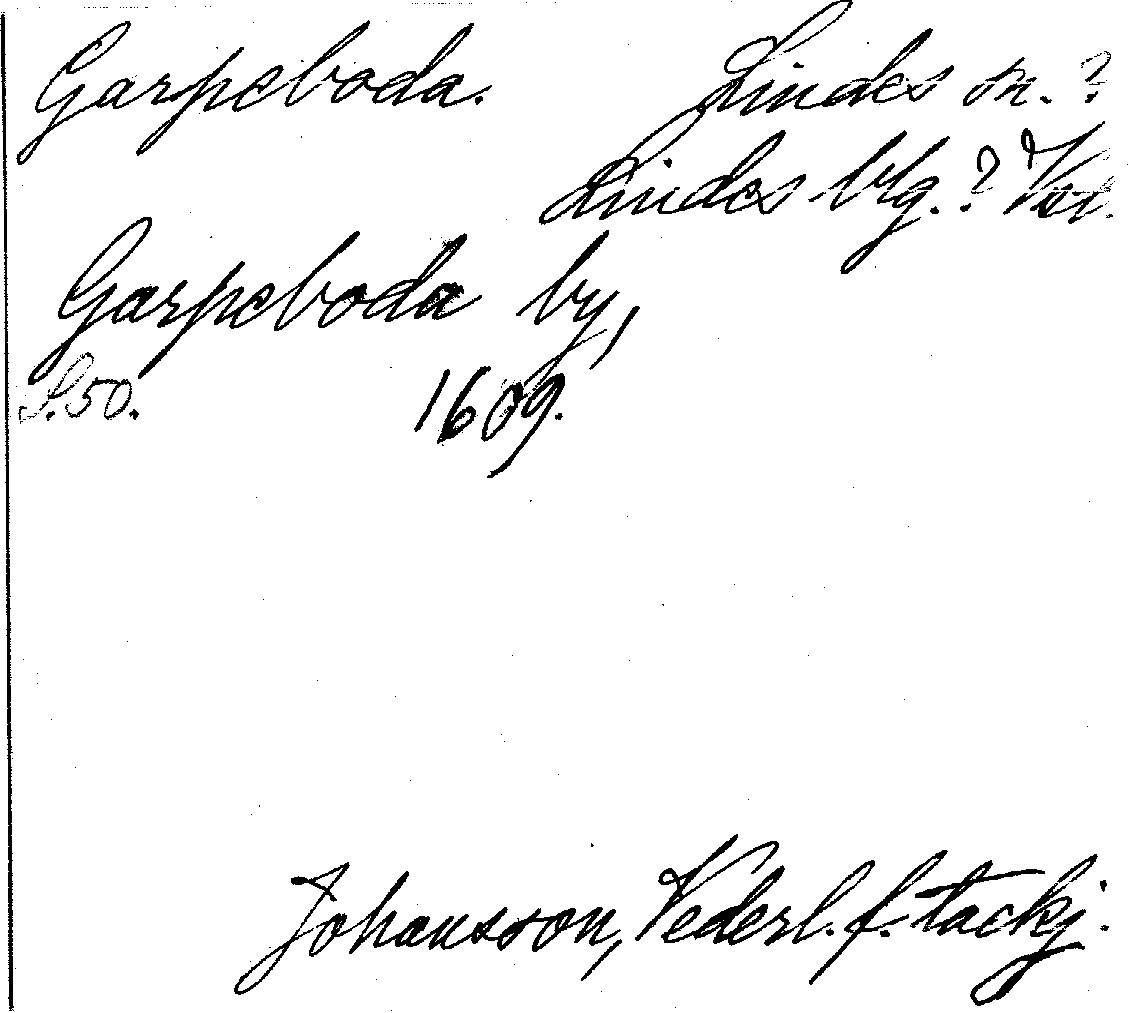 Garpeboda. Lindes sn. ?
Lindes blg. ? Vstm.
Garpeboda by,
S. 50. 1609.
Johansson, Vederl. f. tackj.